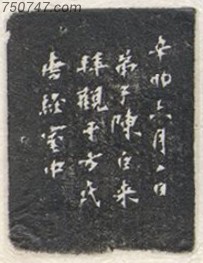 750747.com
辛卯六月八日
弟子陳白来
拜觀于方氏
書經室中